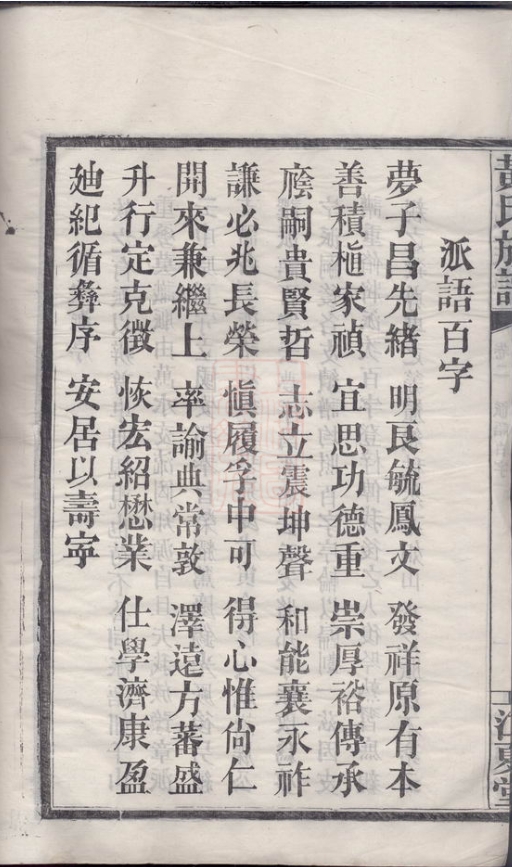 黃氏族譜
江夏堂
派語百字
夢子昌先緒 明良毓鳳文 發祥原有本
善積槌家禎 宜思功德重 崇厚裕傳承
嗣貴賢哲 志立震坤聲 和能襄永祚
謙必兆長榮 慎履孚中可 得心惟尙仁
開來兼繼上 率諭典常敦 澤遠方蕃盛
升行定克徵 恢宏紹懋業 仕學濟康盈
紀循彝序 安居以壽寜